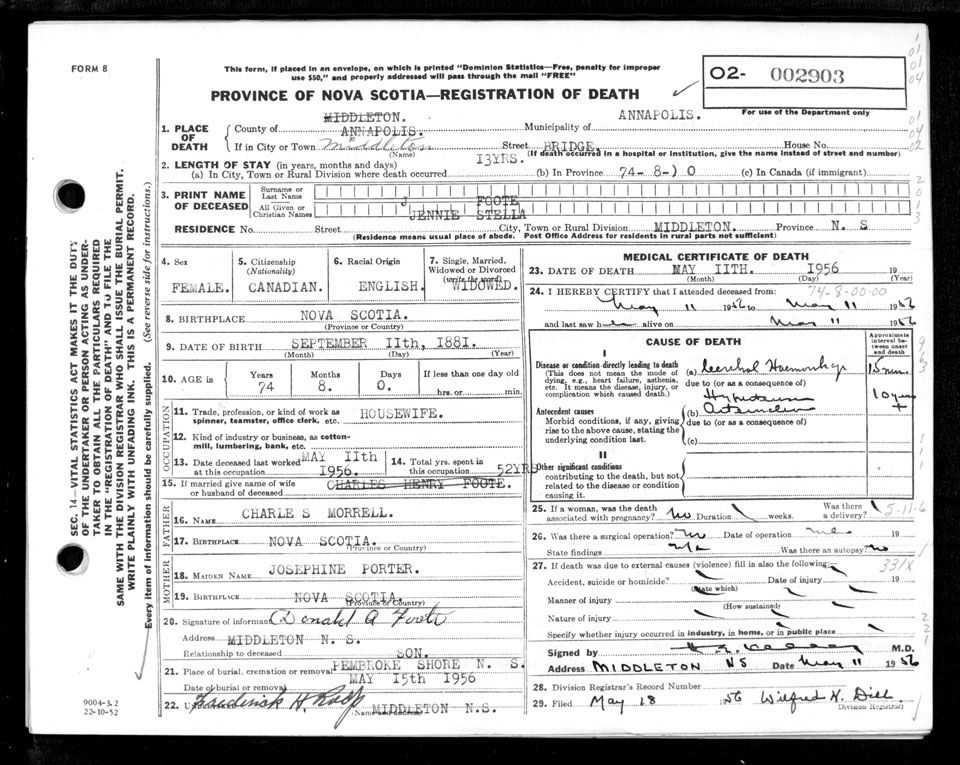 FORM 8
This form, if placed in an envelope, on which is printed "Dominion Statistics—Free, penalty for improper
use $50," and properly addressed will pass through the mail "FREE"
02- 002903
For use of the Department only
PROVINCE OF NOVA SCOTIA—REGISTRATION OF DEATH
1. PLACE OF DEATH
MIDDLETON.
County of ANNAPOLIS. Municipality of ANNAPOLIS.
If in City or Town Middleton Street BRIDGE. House No.
(Name) (If death occurred in a hospital or institution, give the name instead of street and number)
2. LENGTH OF STAY (in years, months and days)
(a) In City, Town or Rural Division where death occurred 13YRS. (b) In Province 74-8-0 (c) In Canada (if immigrant)
3. PRINT NAME OF DECEASED
Surname or Last Name J FOOTE
All Given or Christian Names JENNIE STELLA
RESIDENCE No. Street City, Town or Rural Division MIDDLETON. Province N. S
(Residence means usual place of abode. Post Office Address for residents in rural parts not sufficient)
4. Sex
FEMALE.
5. Citizenship
(Nationality)
CANADIAN.
6. Racial Origin
ENGLISH.
7. Single, Married, Widowed or Divorced
(write the word)
WIDOWED.
8. BIRTHPLACE NOVA SCOTIA.
(Province or Country)
9. DATE OF BIRTH SEPTEMBER 11th, 1881.
(Month) (Day) (Year)
10. AGE in Years Months Days If less than one day old
74 8. 0. hrs. or min.
OCCUPATION
11. Trade, profession, or kind of work as
spinner, teamster, office clerk, etc. HOUSEWIFE.
12. Kind of industry or business, as cotton-
mill, lumbering, bank, etc.
13. Date deceased last worked
at this occupation MAY 11th 1956.
14. Total yrs. spent
in this occupation 52YRS
15. If married give name of wife
or husband of deceased CHARLES HENRY FOOTE.
FATHER
16. NAME CHARLE S MORRELL.
17. BIRTHPLACE NOVA SCOTIA.
(Province or Country)
MOTHER
18. MAIDEN NAME JOSEPHINE PORTER.
19. BIRTHPLACE NOVA SCOTIA.
(Province or Country)
20. Signature of informant Donald A Foote
Address MIDDLETON N. S.
Relationship to deceased SON.
21. Place of burial, cremation or removal PEMBROKE SHORE N. S.
Date of burial or removal MAY 15th 1956
22. Frederick H Roop
MIDDLETON N.S.
(Name and address)
MEDICAL CERTIFICATE OF DEATH
23. DATE OF DEATH MAY 11TH. 1956 19
(Month) (Day) (Year)
24. I HEREBY CERTIFY that I attended deceased from: 74-8-00-00
May 11 1956 to May 11 1956
and last saw h alive on May 11 1956
CAUSE OF DEATH
Approximate interval between onset and death
I
Disease or condition directly leading to death
(This does not mean the mode of
dying, e.g., heart failure, asthenia,
etc. It means the disease, injury, or
complication which caused death.)
(a) Cerebral Haemorrhage 15 min.
due to (or as a consequence of)
Antecedent causes
Morbid conditions, if any, giving
rise to the above cause, stating the
underlying condition last.
(b) 10 years +
due to (or as a consequence of)
(c)
II
Other significant conditions
contributing to the death, but not
related to the disease or condition
causing it.
25. If a woman, was the death
associated with pregnancy? no Duration weeks. Was there
a delivery?
5-11-6
26. Was there a surgical operation? no Date of operation 19
State findings n/a Was there an autopsy? no
27. If death was due to external causes (violence) fill in also the following: 331X
Accident, suicide or homicide? Date of injury 19
(State which)
Manner of injury
(How sustained)
Nature of injury
Specify whether injury occurred in industry, in home, or in public place
Signed by M.D.
Address MIDDLETON NS Date May 11 1956
28. Division Registrar's Record Number
29. Filed May 18 1956 Wilfred H. Dill
(Division Registrar)
SEC. 14. VITAL STATISTICS ACT MAKES IT THE DUTY
OF THE UNDERTAKER OR PERSON ACTING AS UNDER-
TAKER TO OBTAIN ALL THE PARTICULARS REQUIRED
IN THE "REGISTRATION OF DEATH" AND TO FILE THE
SAME WITH THE DIVISION REGISTRAR WHO SHALL ISSUE THE BURIAL PERMIT.
WRITE PLAINLY WITH UNFADING INK. THIS IS A PERMANENT RECORD.
Every item of information should be carefully supplied. (See reverse side for instructions.)
9004-3.2
22-10-52